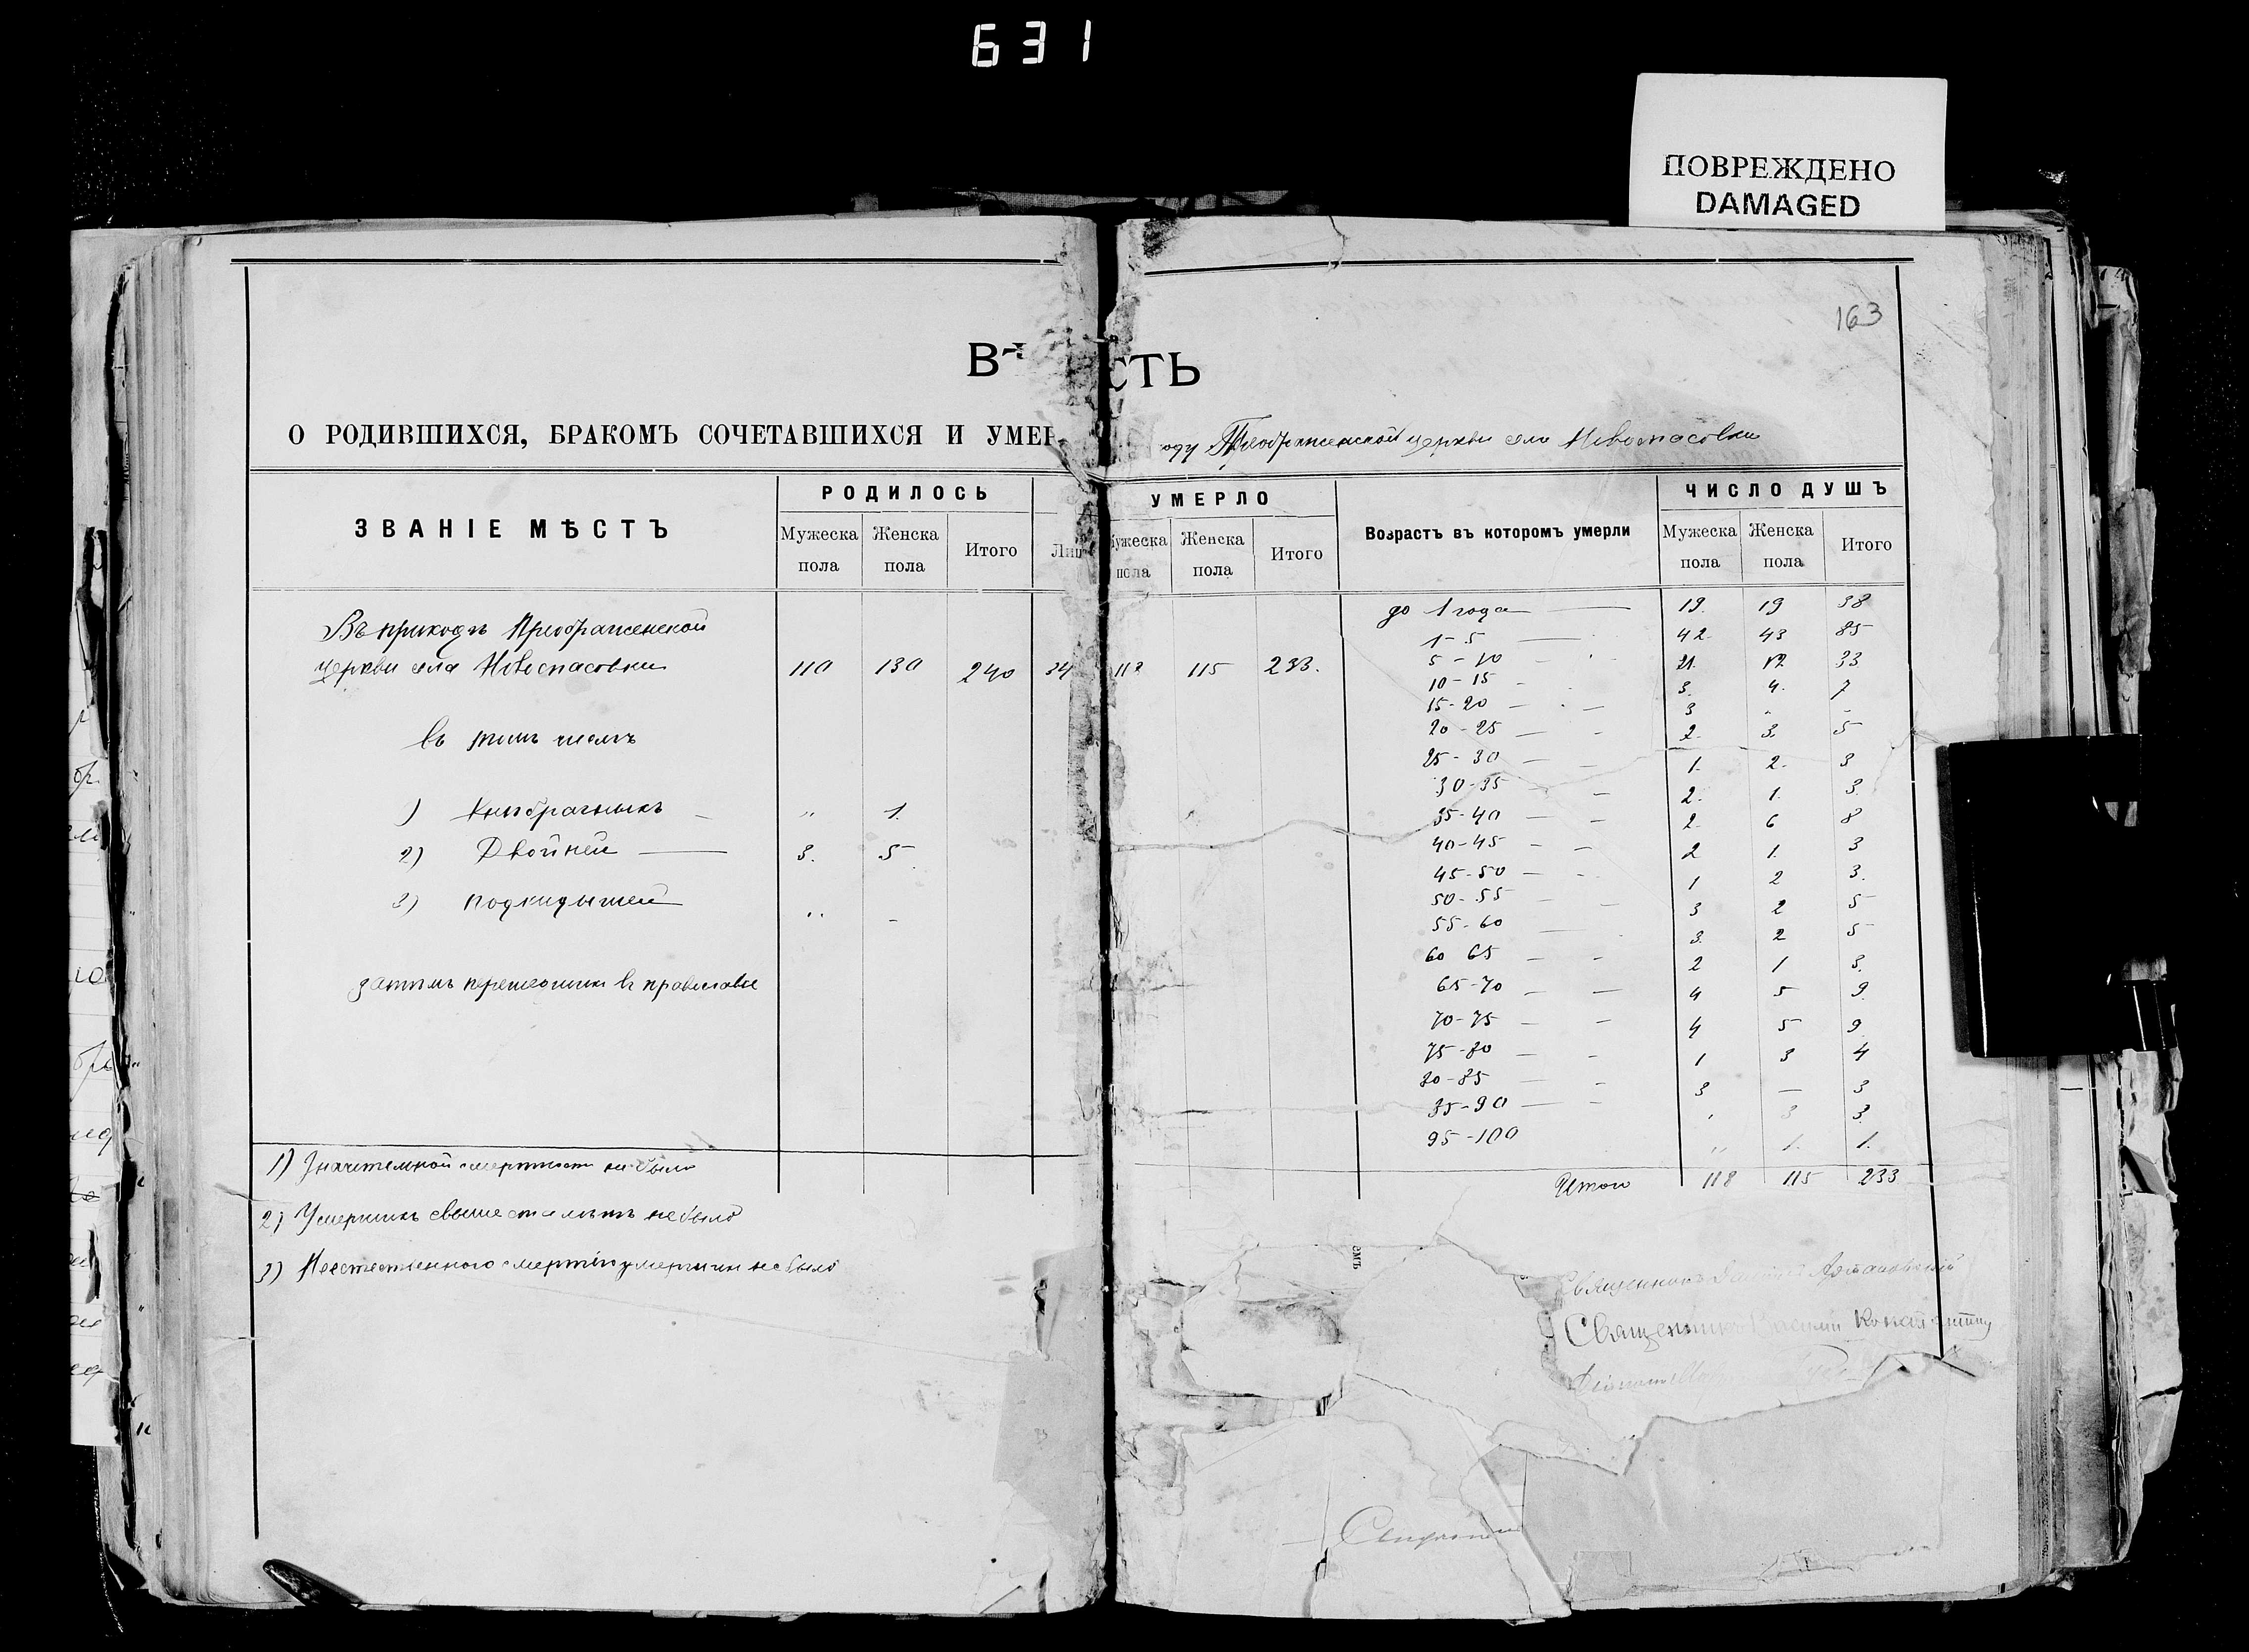 631
ПОВРЕЖДЕНО
DAMAGED
163
ВѢ СТЬ
О РОДИВШИХСЯ, БРАКОМЪ СОЧЕТАВШИХСЯ И УМЕР оду Преображенской церкви села Новоспасовки
ЗВАНІЕ МѢСТЪ
РОДИЛОСЬ
Мужеска пола
Женска пола
Итого
УМЕРЛО
Мужеска пола
Женска пола
Итого
Возрастъ въ которомъ умерли
ЧИСЛО ДУШЪ
Мужеска пола
Женска пола
Итого
Въ приходѣ Преображенской
церкви села Новоспасовки 110 130 240 34 118 115 233.
въ томъ числѣ
1) Внѣбрачныхъ - „ 1.
2) Двойней — 3. 5
3) подкидышей „ -
затѣмъ перешедшихъ въ православіе
1) Значительной смертности не было
2) Умершихъ свыше ста лѣтъ не было
3) Неестественного смертію умерших не было
до 1 года — 19. 19 38
1-5 — 42. 43 85
5-10 - 21. 12 33
10-15 - 3. 4. 7
15-20 - 3 - -
20-25 - 2. 3. 5
25-30 - 1. 2. 3
30-35 - 2. 1. 3.
35-40 - 2. 6 8
40-45 - 2 1. 3
45-50 - 1 2 3.
50-55 - 3 2 5
55-60 - 3. 2 5
60 65 - 2 1 3.
65-70 - 4 5 9.
70-75 - 4 5 9.
75-80 - 1 3 4
80-85 - 3 — 3
85-90 - „ 3 3.
95-100 „ 1. 1.
Итого 118 115 233
Священникъ
Священникъ Василий